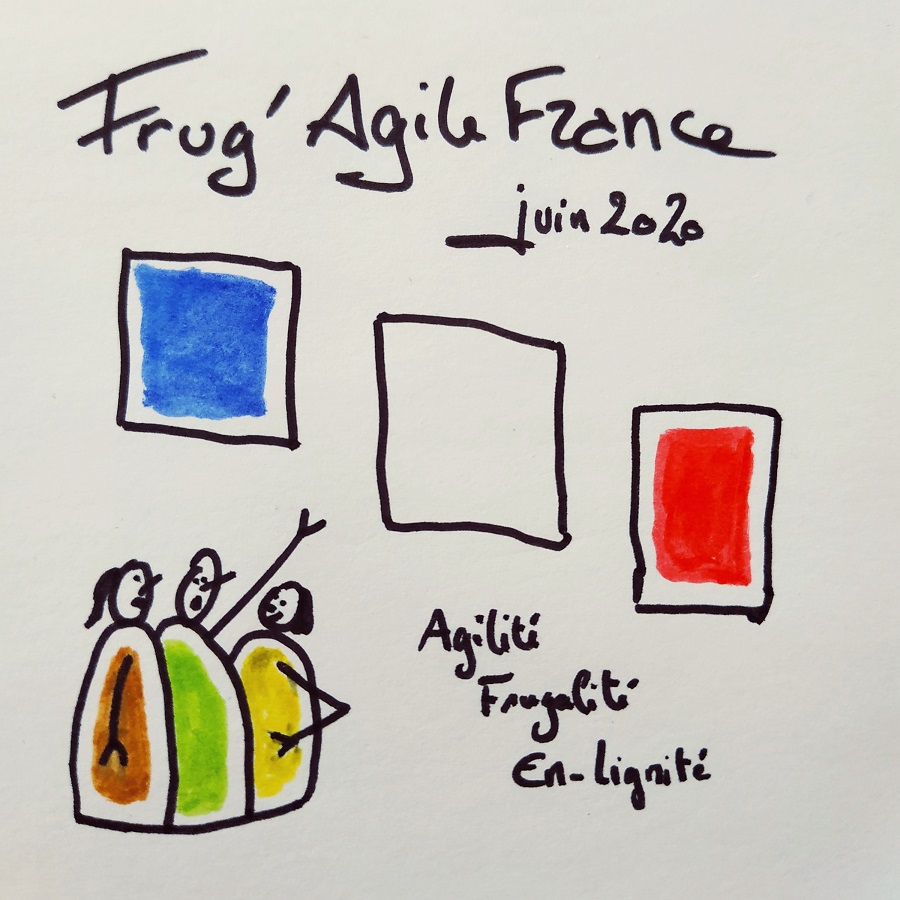 Frug' Agile France
juin 2020
Agilité
Frugalité
En-lignité